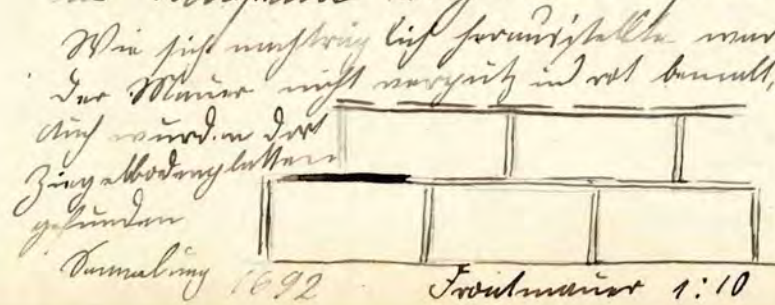 Wie sich nachträglich herausstellte war
der Mauer nicht verputz und rot bemalt,
Auch wurden dort
Ziegelbodenplatten
gefunden
Sammlung 1692 Frontmauer 1:10